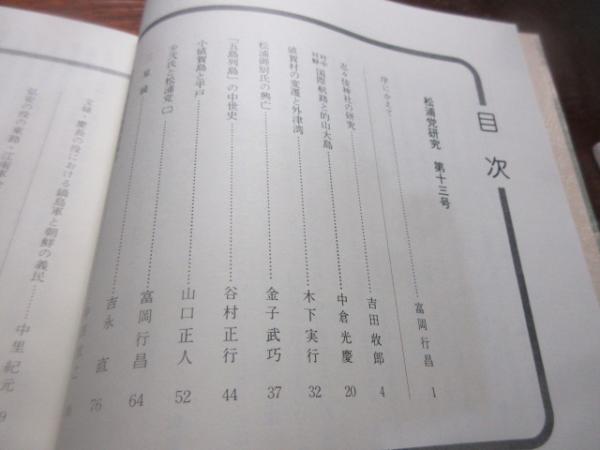 目次
松浦党研究 第十三号
序にかえて 富岡行昌 1
志々伎神社の研究 吉田収郎 4
国際航路と的山大島 中倉光慶 20
値賀村の変遷と外津湾 木下実行 32
松浦御厨氏の興亡 金子武巧 37
「五島列島」の中世史 谷村正行 44
小値賀島と平戸 山口正人 52
少弐氏と松浦党(二) 富岡行昌 64
吉永直 76
文禄・慶長の役における鍋島軍と朝鮮の義民 中里紀元
弘安の役の東路・江南軍